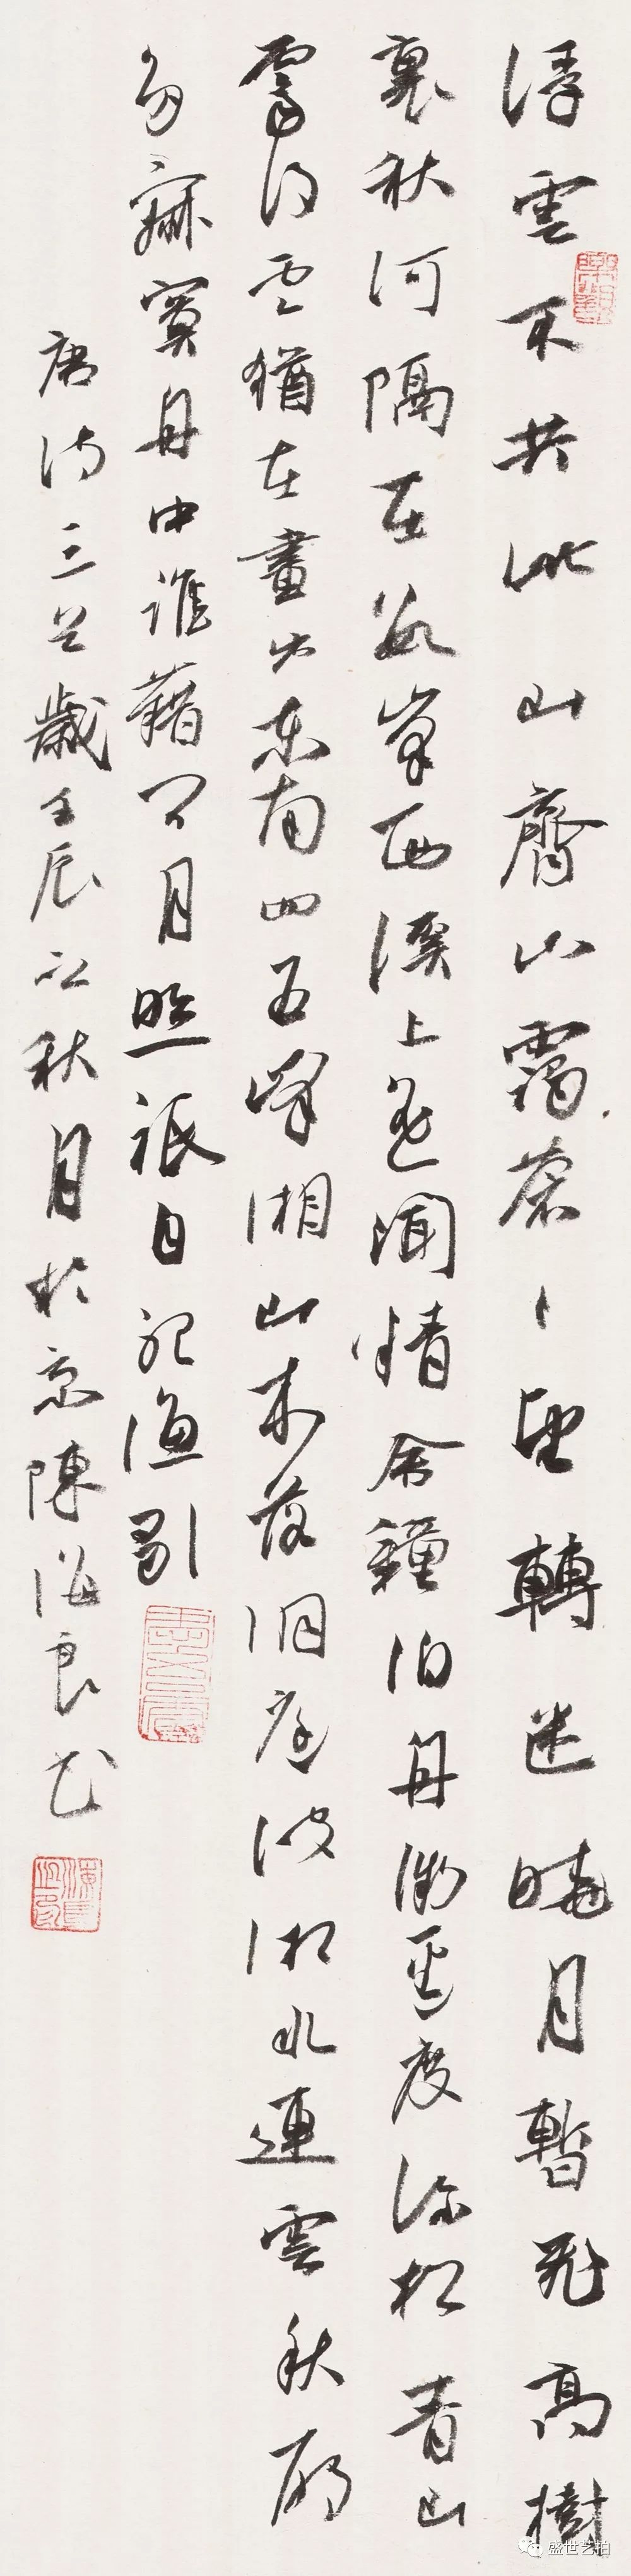 浮雲不共此山齊山靄蒼々望轉迷曉月暫飛高樹
裏秋河隔在數峯西溪上遥聞精舍鐘泊舟微徑度深松青山
霽後雲猶在畫出東南四五峰湘山木落洞庭波湘水連雲秋雁
多寂寞舟中誰藉問月照祇自聽漁歌
唐詩三首歲壬辰初秋月於京陳海良書
盛世艺拍